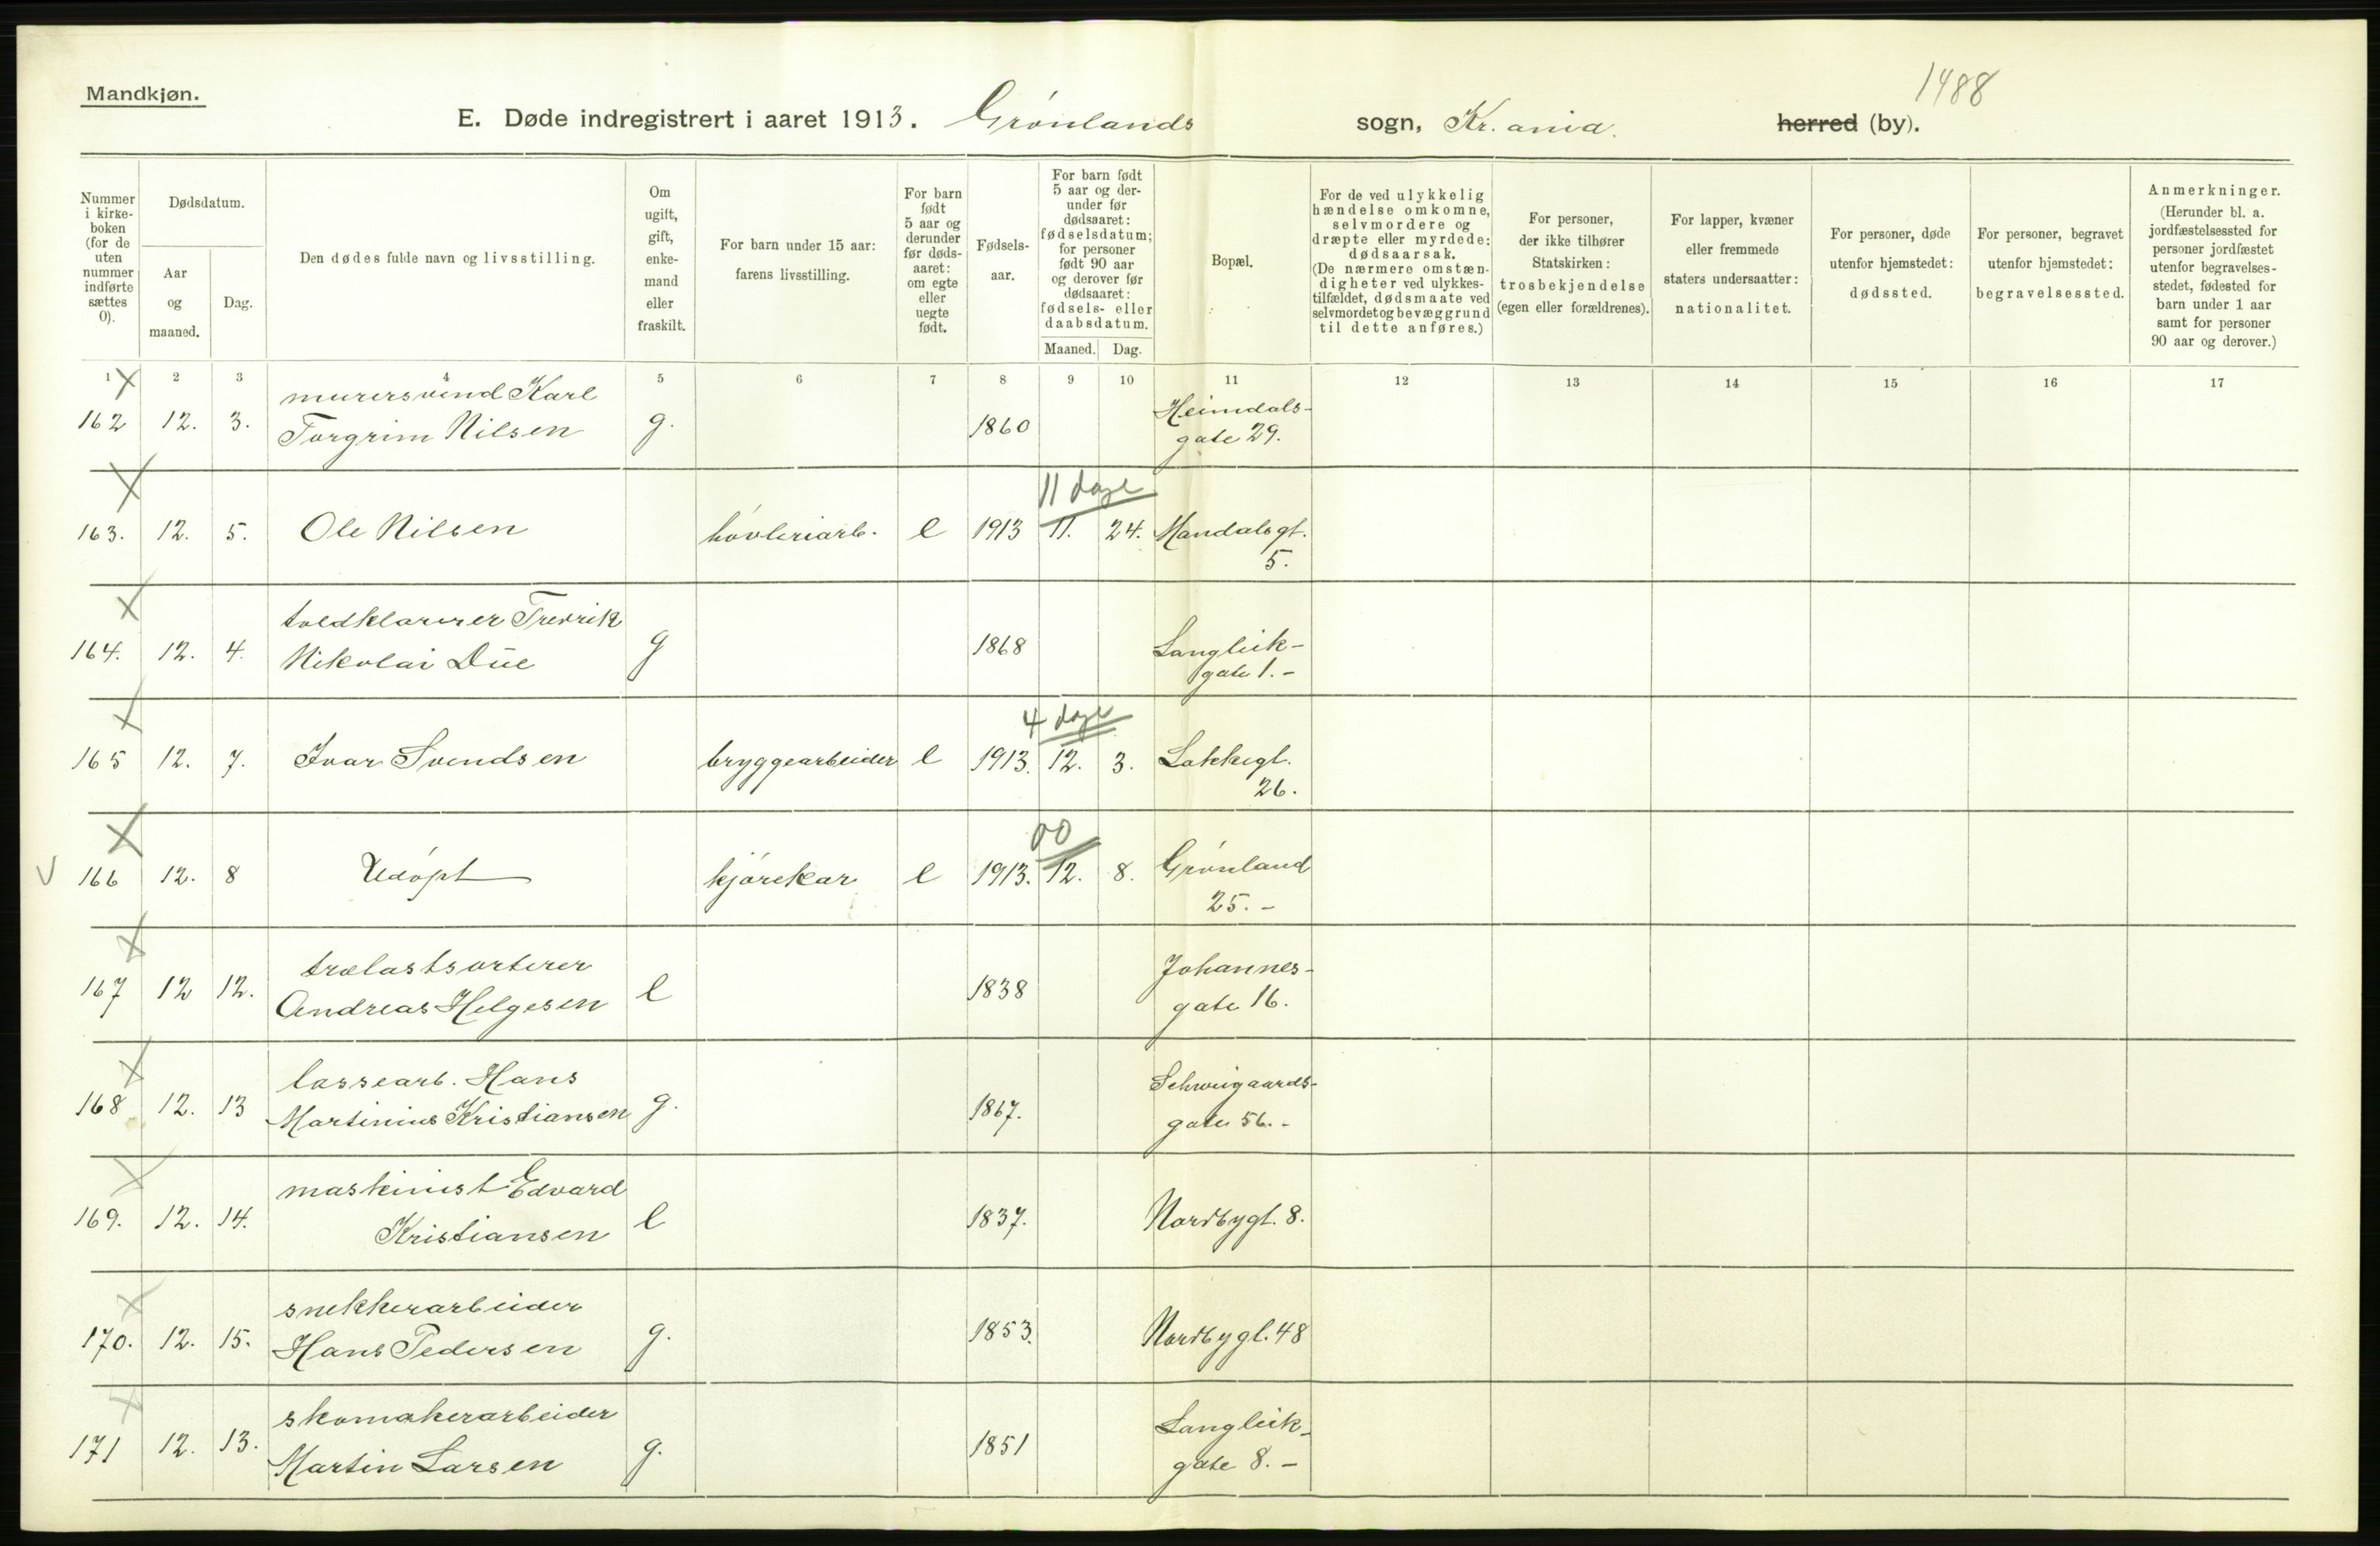 Mandkjøn.
1488
E. Døde indregistrert i aaret 1913. Grønlands sogn, Kr.ania. herred (by).
Nummer i kirkeboken (for de uten nummer indførte sættes 0).
Dødsdatum.
Aar og maaned.
Dag.
Den dødes fulde navn og livsstilling.
Om ugift, gift, enkemand eller fraskilt.
For barn under 15 aar: farens livsstilling.
For barn født 5 aar og derunder før dødsaaret: om egte eller uegte født.
Fødselsaar.
For barn født 5 aar og derunder før dødsaaret: fødselsdatum; for personer født 90 aar og derover før dødsaaret: fødsels- eller daabsdatum.
Maaned. Dag.
Bopæl.
For de ved ulykkelig hændelse omkomne, selvmordere og dræpte eller myrdede: dødsaarsak. (De nærmere omstændigheter ved ulykkestilfældet, dødsmaate ved selvmordet og bevæggrund til dette anføres.)
For personer, der ikke tilhører Statskirken: trosbekjendelse (egen eller forældrenes).
For lapper, kvæner eller fremmede staters undersaatter: nationalitet.
For personer, døde utenfor hjemstedet: dødssted.
For personer, begravet utenfor hjemstedet: begravelsessted.
Anmerkninger. (Herunder bl. a. jordfæstelsessted for personer jordfæstet utenfor begravelsesstedet, fødested for barn under 1 aar samt for personer 90 aar og derover.)
1 2 3 4 5 6 7 8 9 10 11 12 13 14 15 16 17
X
murersvend Karl
162 12. 3. Torgrim Nilsen g. 1860 Heimdals-
gate 29.
X
11 dage
163. 12. 5. Ole Nilsen høvleriarb. e 1913 11. 24. Mandalsgt.
5.
X
toldklarerer Fredrik
164. 12. 4. Nikolai Düe g 1868 Langleik-
gate 1. -
X
4 dage
165 12. 7. Ivar Svendsen bryggearbeider e 1913. 12. 3. Lakkegt.
26.
X
00
V 166 12. 8 Udøpt kjørekar e 1913. 12. 8. Grønland
25. -
X
trælastsorterer
167 12 12. Andreas Helgesen e 1838 Johannes-
gate 16.
X
lossearb. Hans
168 12. 13 Martinius Kristiansen g. 1867. Schweigaards-
gate 56. -
X
maskinist Edvard
169. 12. 14. Kristiansen e 1837. Nordbygt. 8.
X
snekkerarbeider
170. 12. 15. Hans Pedersen g. 1853. Nordbygt. 48
X
skomakerarbeider
171 12. 13. Martin Larsen g. 1851 Langleik-
gate 8. -